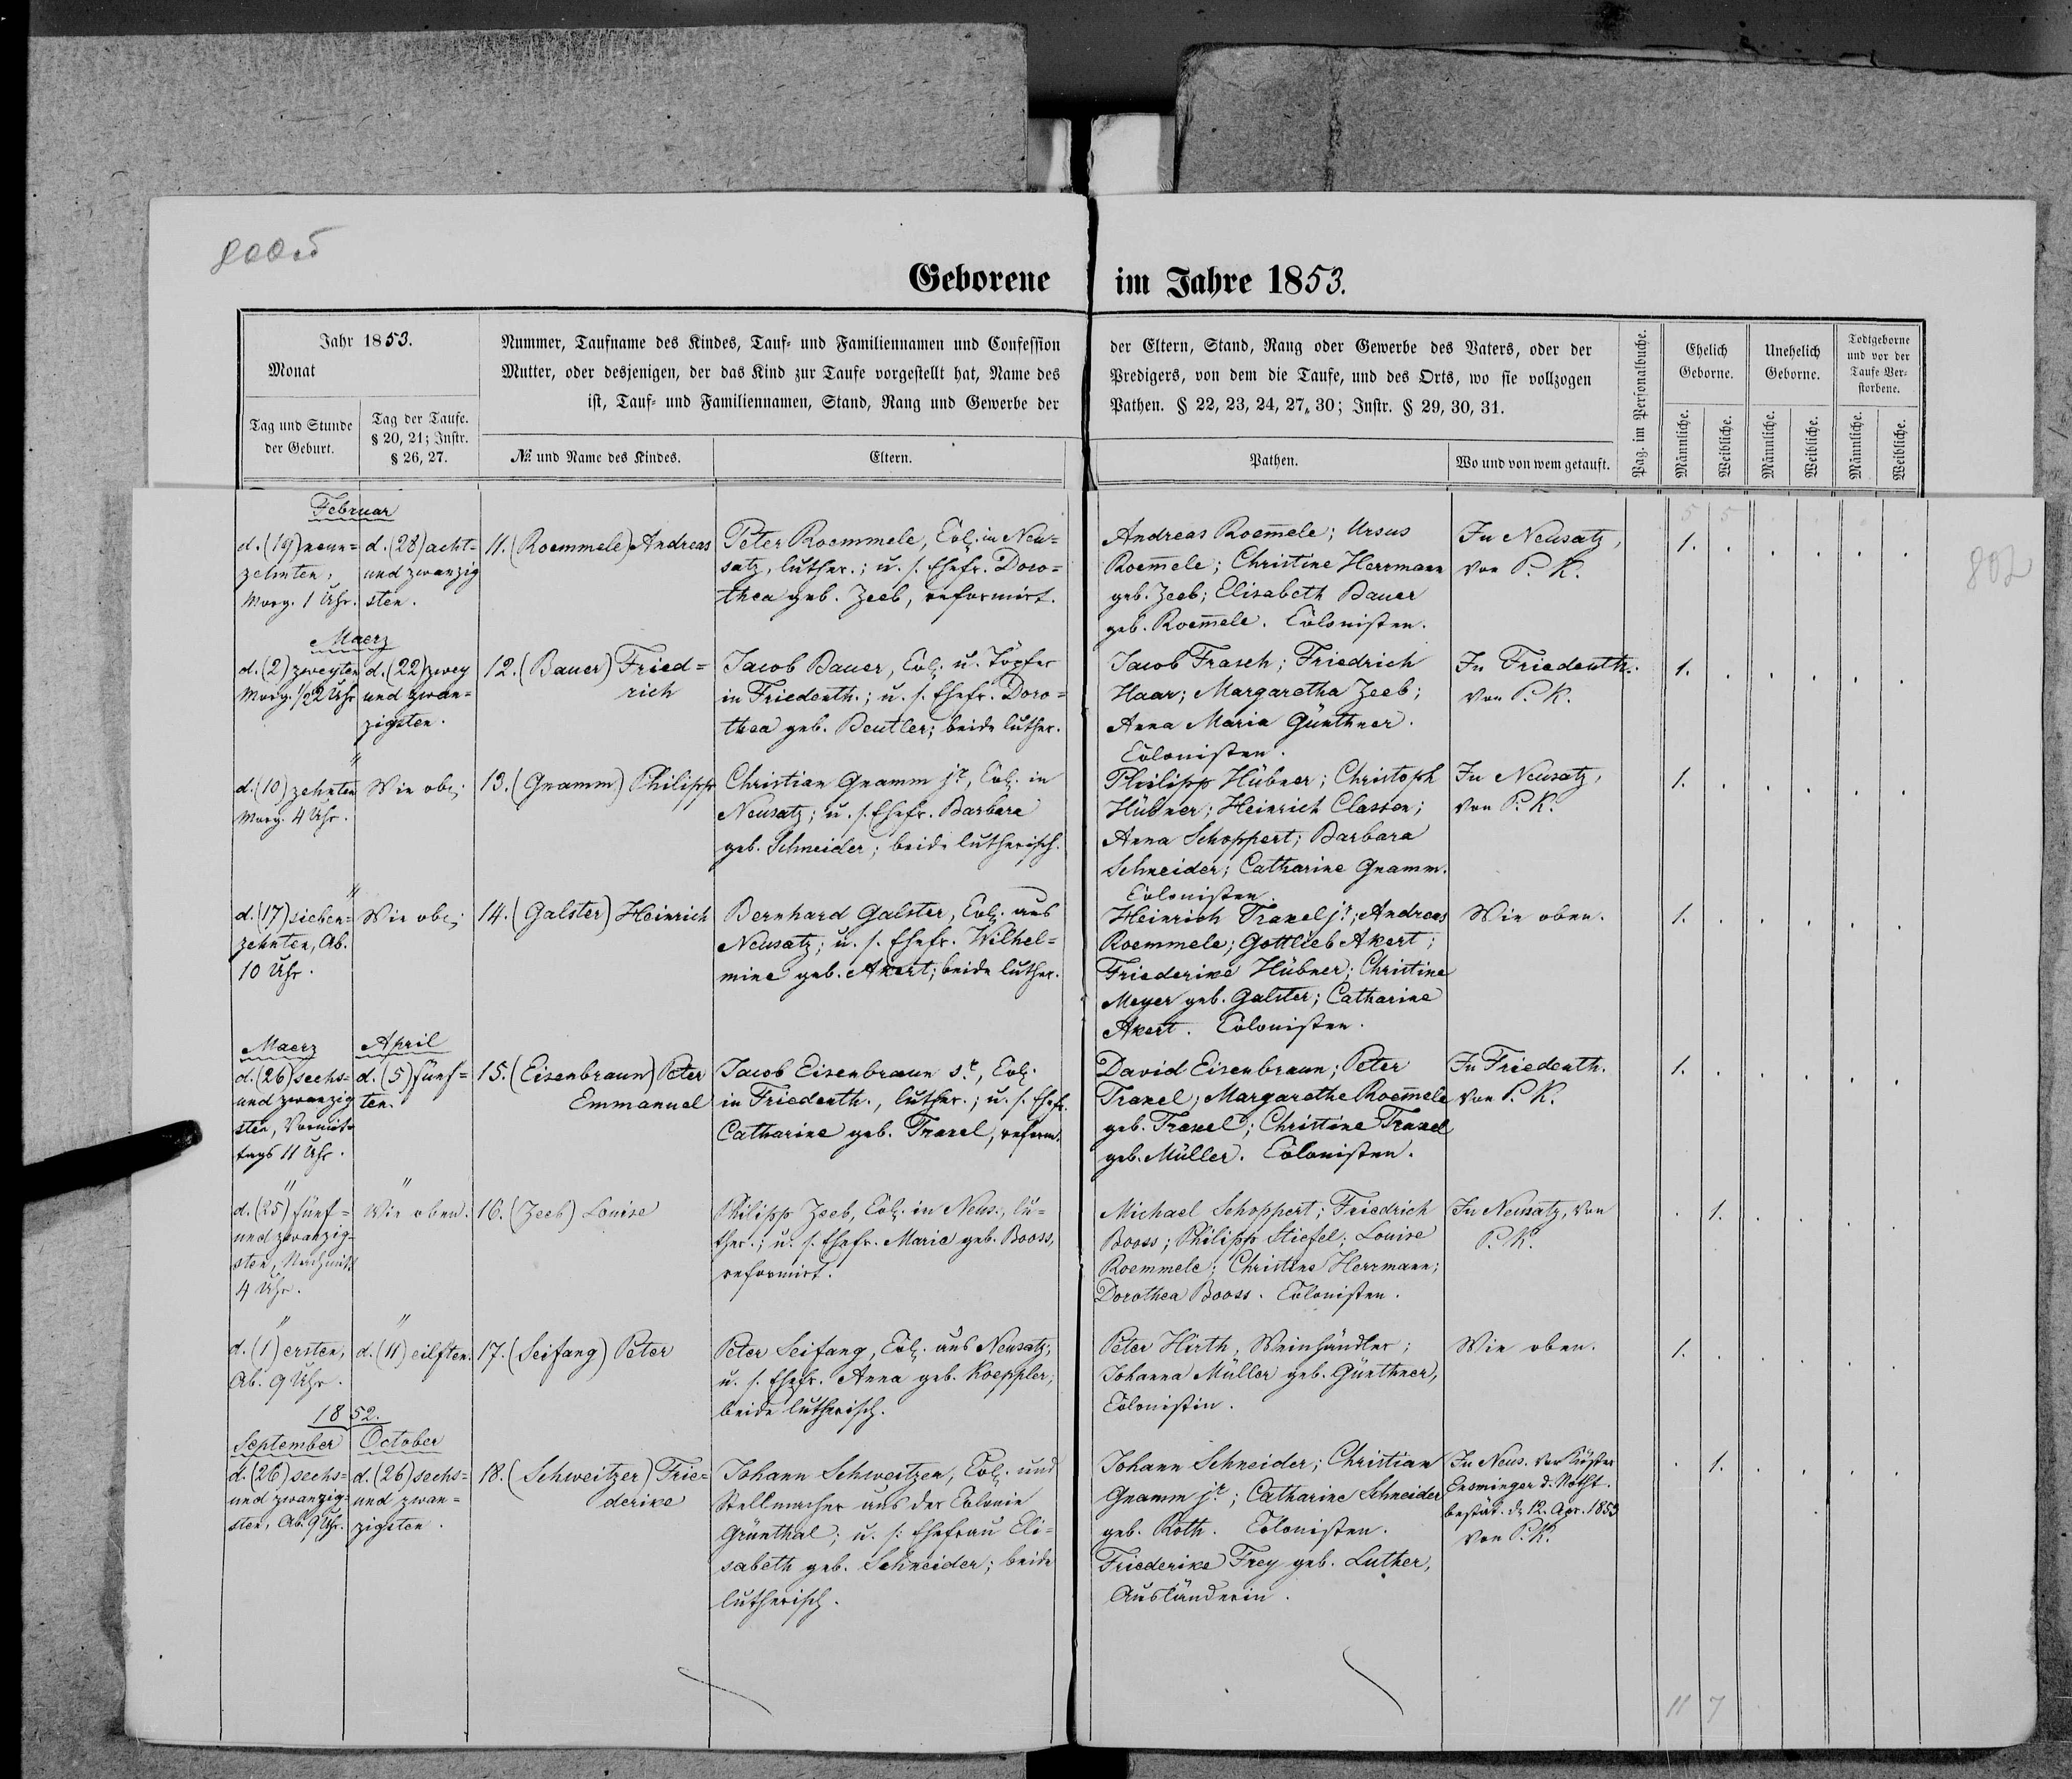 Geborene im Jahre 1853.
Jahr 1853.
Monat
Tag und Stunde
der Geburt.
Tag der Taufe.
§ 20, 21; Instr.
§ 26, 27.
Nummer, Taufname des Kindes, Tauf- und Familiennamen und Confession
Mutter, oder desjenigen, der das Kind zur Taufe vorgestellt hat, Name des
ist, Tauf- und Familiennamen, Stand, Rang und Gewerbe der
№ und Name des Kindes.
Eltern.
der Eltern, Stand, Rang oder Gewerbe des Vaters, oder der
Predigers, von dem die Taufe, und des Orts, wo sie vollzogen
Pathen. § 22, 23, 24, 27, 30; Instr. § 29, 30, 31.
Pathen.
Wo und von wem getauft.
Pag. im Personalbuche.
Ehelich
Geborne.
Unehelich
Geborne.
Todtgeborne
und vor der
Taufe Ver-
storbene.
Männliche.
Weibliche.
Männliche.
Weibliche.
Männliche.
Weibliche.
5 5
802
Februar
d. (19) neun-
zehnten,
Morg. 1 Uhr.
d. (28) acht-
und zwanzig
sten.
11. (Roemmele) Andreas
Peter Roemmele, Col. in Neu-
satz, luther.; u. s. Ehefr. Doro-
thea geb. Zeeb, reformirt.
Andreas Roem̄ele; Ursus
Roem̄ele; Christine Herrmann
geb. Zeeb; Elisabeth Bauer
geb. Roem̄ele. Colonisten.
In Neusatz,
von P. K.
1.
Maerz
d. (2) zweyten
Morg. ½2 Uhr
d. (22) zwey
und zwan-
zigsten.
12. (Bauer) Fried-
rich
Jacob Bauer, Col. u. Töpfer
in Friedenth.; u. s. Ehefr. Doro-
thea geb. Beutler; beide luther.
Jacob Frasch; Friedrich
Haar; Margaretha Zeeb;
Anna Maria Günthner.
Colonisten.
In Friedenth.
von P. K.
1.
"
d. (10) zehnten
Morg. 4 Uhr.
Wie oben
13. (Gnamm) Philipp
Christian Gnamm jr, Col. in
Neusatz; u. s. Ehefr. Barbara
geb. Schneider; beide lutherisch.
Philipp Hübner; Christoph
Hübner; Heinrich Classen;
Anna Schoppert; Barbara
Schneider; Catharine Gnamm.
Colonisten.
In Neusatz,
von P. K.
1.
"
d. (17) sieben-
zehnten, Ab.
10 Uhr.
Wie oben
14. (Galster) Heinrich
Bernhard Galster, Col. aus
Neusatz; u. s. Ehefr. Wilhel-
mine geb. Akert; beide luther.
Heinrich Traxel jr; Andreas
Roemmele; Gottlieb Akert;
Friederike Hübner; Christine
Meyer geb. Galster; Catharine
Akert. Colonisten.
Wie oben.
1.
Maerz
April
d. (26) sechs-
und zwanzig
sten, Vormit-
tags 11 Uhr.
d. (5) fünf-
ten.
15. (Eisenbraun) Peter
Emmanuel
Jacob Eisenbraun sr, Col.
in Friedenth., luther.; u. s. Ehefr.
Catharine geb. Traxel, reform.
David Eisenbraun; Peter
Traxel; Margarethe Roem̄ele
geb. Traxel; Christine Traxel
geb. Müller. Colonisten.
In Friedenth.
von P. K.
1.
"
d. (25) fünf-
und zwanzig-
sten, Nachmitt
4 Uhr.
"
Wie oben.
16. (Zeeb) Louise
Philipp Zeeb, Col. in Neus., lu-
ther.; u. s. Ehefr. Marie geb. Booss,
reformirt.
Michael Schoppert; Friedrich
Booss; Philipp Stiefel; Louise
Roemmele; Christine Herrmann;
Dorothea Booss. Colonisten.
In Neusatz, von
P. K.
1.
"
d. (1) ersten,
Ab. 9 Uhr.
"
d. (11) eilften.
17. (Seifang) Peter
Peter Seifang, Col. aus Neusatz;
u. s. Ehefr. Anna geb. Koeppler,
beide lutherisch.
Peter Hirth, Weinhändler;
Johanna Müller geb. Günthner,
Colonistin.
Wie oben.
1.
1852.
September
October
d. (26) sechs-
und zwanzig-
sten, Ab. 9 Uhr.
d. (26) sechs-
und zwan-
zigsten.
18. (Schweitzer) Frie-
derike
Johann Schweitzer, Col. und
Stellmacher aus der Colonie
Grünthal; u. s. Ehefrau Eli-
sabeth geb. Schneider; beide
lutherisch.
Johann Schneider; Christian
Gnamm jr; Catharine Schneider
geb. Roth. Colonisten.
Friederike Frey geb. Luther,
Ausländerin.
In Neus. von Küster
Ensminger d. Notht.
bestät. d. 12. Apr. 1853
von P. K.
1.
11 7